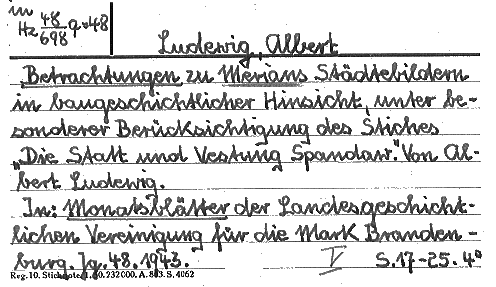 in
Hz 48/698 q=48
Ludewig, Albert
Betrachtungen zu Merians Städtebildern
in baugeschichtlicher Hinsicht, unter be-
sonderer Berücksichtigung des Stiches
„Die Statt und Vestung Spandaw." Von Al-
bert Ludewig.
In: Monatsblätter der Landesgeschicht-
lichen Vereinigung für die Mark Branden-
burg. Jg. 48. 1943. V S. 17-25. 4°
Reg. 10. 232000. A. 833. S. 4062